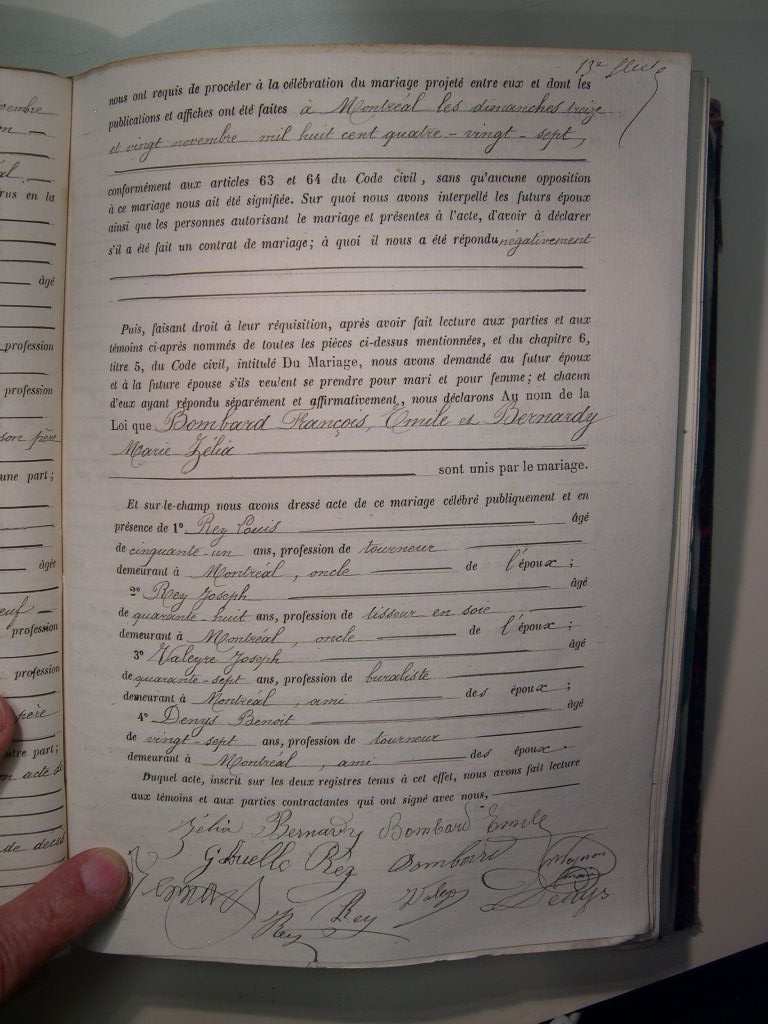 13e
nous ont requis de procéder à la célébration du mariage projeté entre eux et dont les
publications et affiches ont été faites à Montréal les dimanches treize
et vingt novembre mil huit cent quatre-vingt-sept,
conformément aux articles 63 et 64 du Code civil, sans qu'aucune opposition
à ce mariage nous ait été signifiée. Sur quoi nous avons interpellé les futurs époux
ainsi que les personnes autorisant le mariage et présentes à l'acte, d'avoir à déclarer
s'il a été fait un contrat de mariage; à quoi il nous a été répondu négativement
Puis, faisant droit à leur réquisition, après avoir fait lecture aux parties et aux
témoins ci-après nommés de toutes les pièces ci-dessus mentionnées, et du chapitre 6,
titre 5, du Code civil, intitulé Du Mariage, nous avons demandé au futur époux
et à la future épouse s'ils veulent se prendre pour mari et pour femme; et chacun
d'eux ayant répondu séparément et affirmativement, nous déclarons Au nom de la
Loi que Bombard François, Emile et Bernardy
Marie Zélia
sont unis par le mariage.
Et sur-le-champ nous avons dressé acte de ce mariage célébré publiquement et en
présence de 1º Rey Louis âgé
de cinquante-un ans, profession de tourneur
demeurant à Montréal, oncle de l'époux;
2º Rey Joseph âgé
de quarante-huit ans, profession de tisseur en soie
demeurant à Montréal, oncle de l'époux;
3º Valeyre Joseph âgé
de quarante-sept ans, profession de buraliste
demeurant à Montréal, ami des époux;
4º Denys Benoit âgé
de vingt-sept ans, profession de tourneur
demeurant à Montréal, ami des époux.
Duquel acte, inscrit sur les deux registres tenus à cet effet, nous avons fait lecture
aux témoins et aux parties contractantes qui ont signé avec nous,
Zélia Bernardy Bombard Emile
Rey
Rey Rey Denys
rus en la
âgé
profession
profession
son père
une part;
âgée
profession
profession
père
autre part;
acte de
de décès